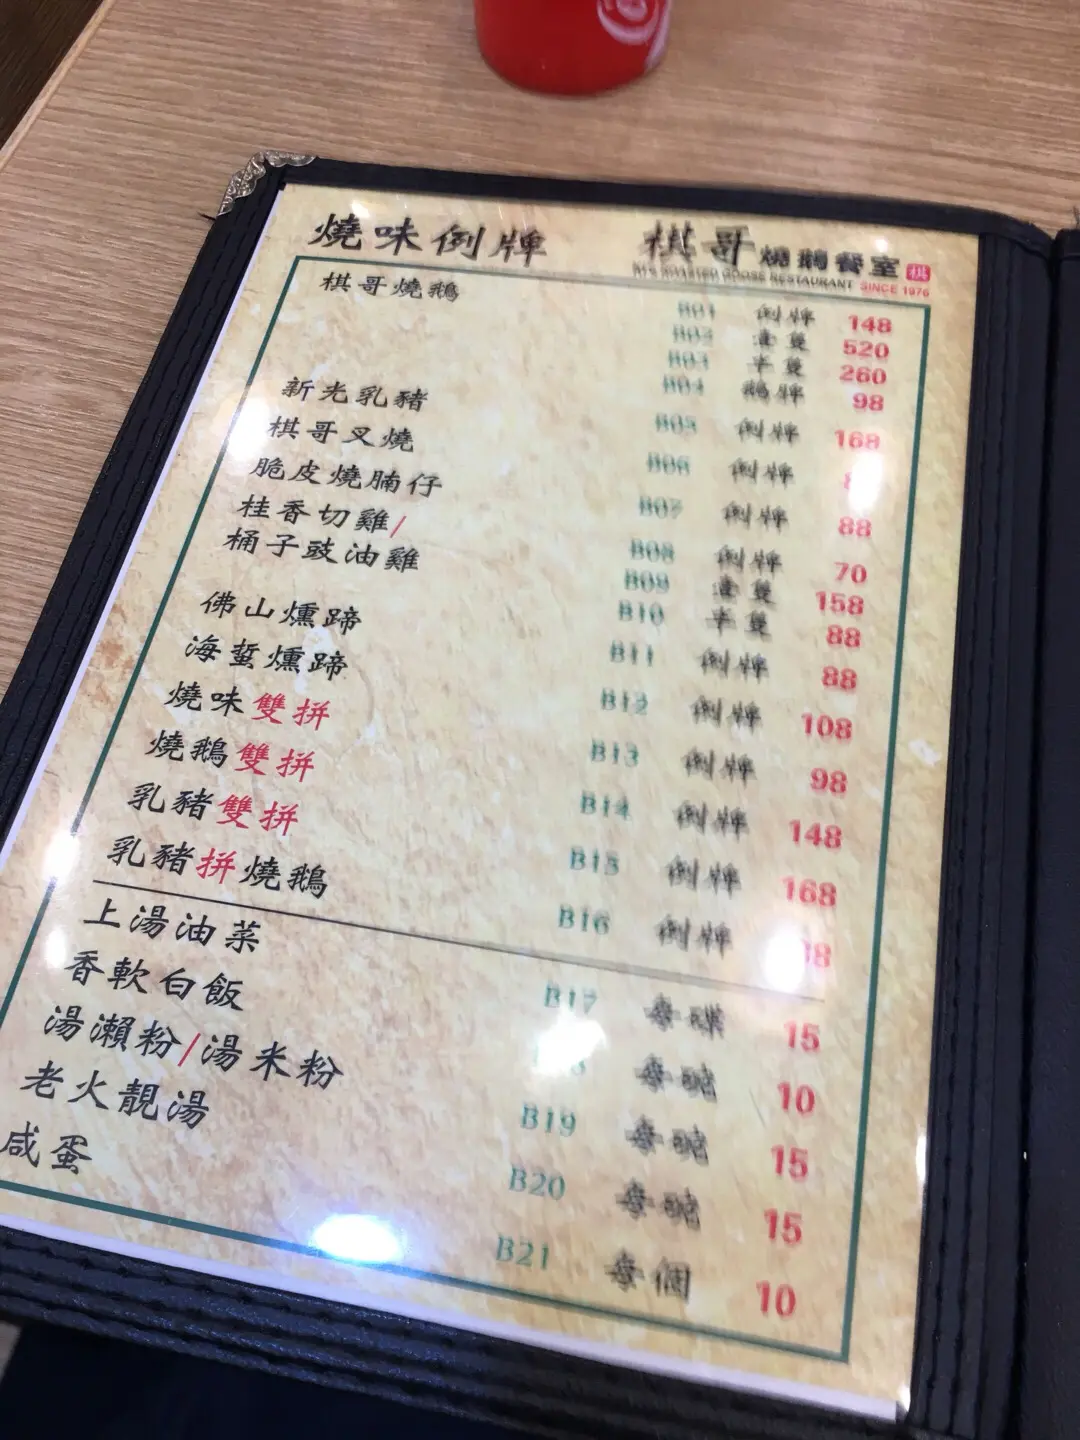 燒味例牌
棋哥燒鵝餐室 棋
ROASTED GOOSE RESTAURANT SINCE 1976
棋哥燒鵝 B01 例牌 148
B02 壹隻 520
B03 半隻 260
B04 鵝髀 98
新光乳豬 B05 例牌 168
棋哥叉燒 B06 例牌
脆皮燒腩仔 B07 例牌 88
桂香切雞/ B08 例牌 70
桶子豉油雞 B09 壹隻 158
B10 半隻 88
佛山燻蹄 B11 例牌 88
海蜇燻蹄 B12 例牌 108
燒味雙拼 B13 例牌 98
燒鵝雙拼 B14 例牌 148
乳豬雙拼 B15 例牌 168
乳豬拼燒鵝 B16 例牌
上湯油菜 B17 每碟 15
香軟白飯 每碗 10
湯瀨粉/湯米粉 B19 每碗 15
老火靚湯 B20 每碗 15
咸蛋 B21 每個 10